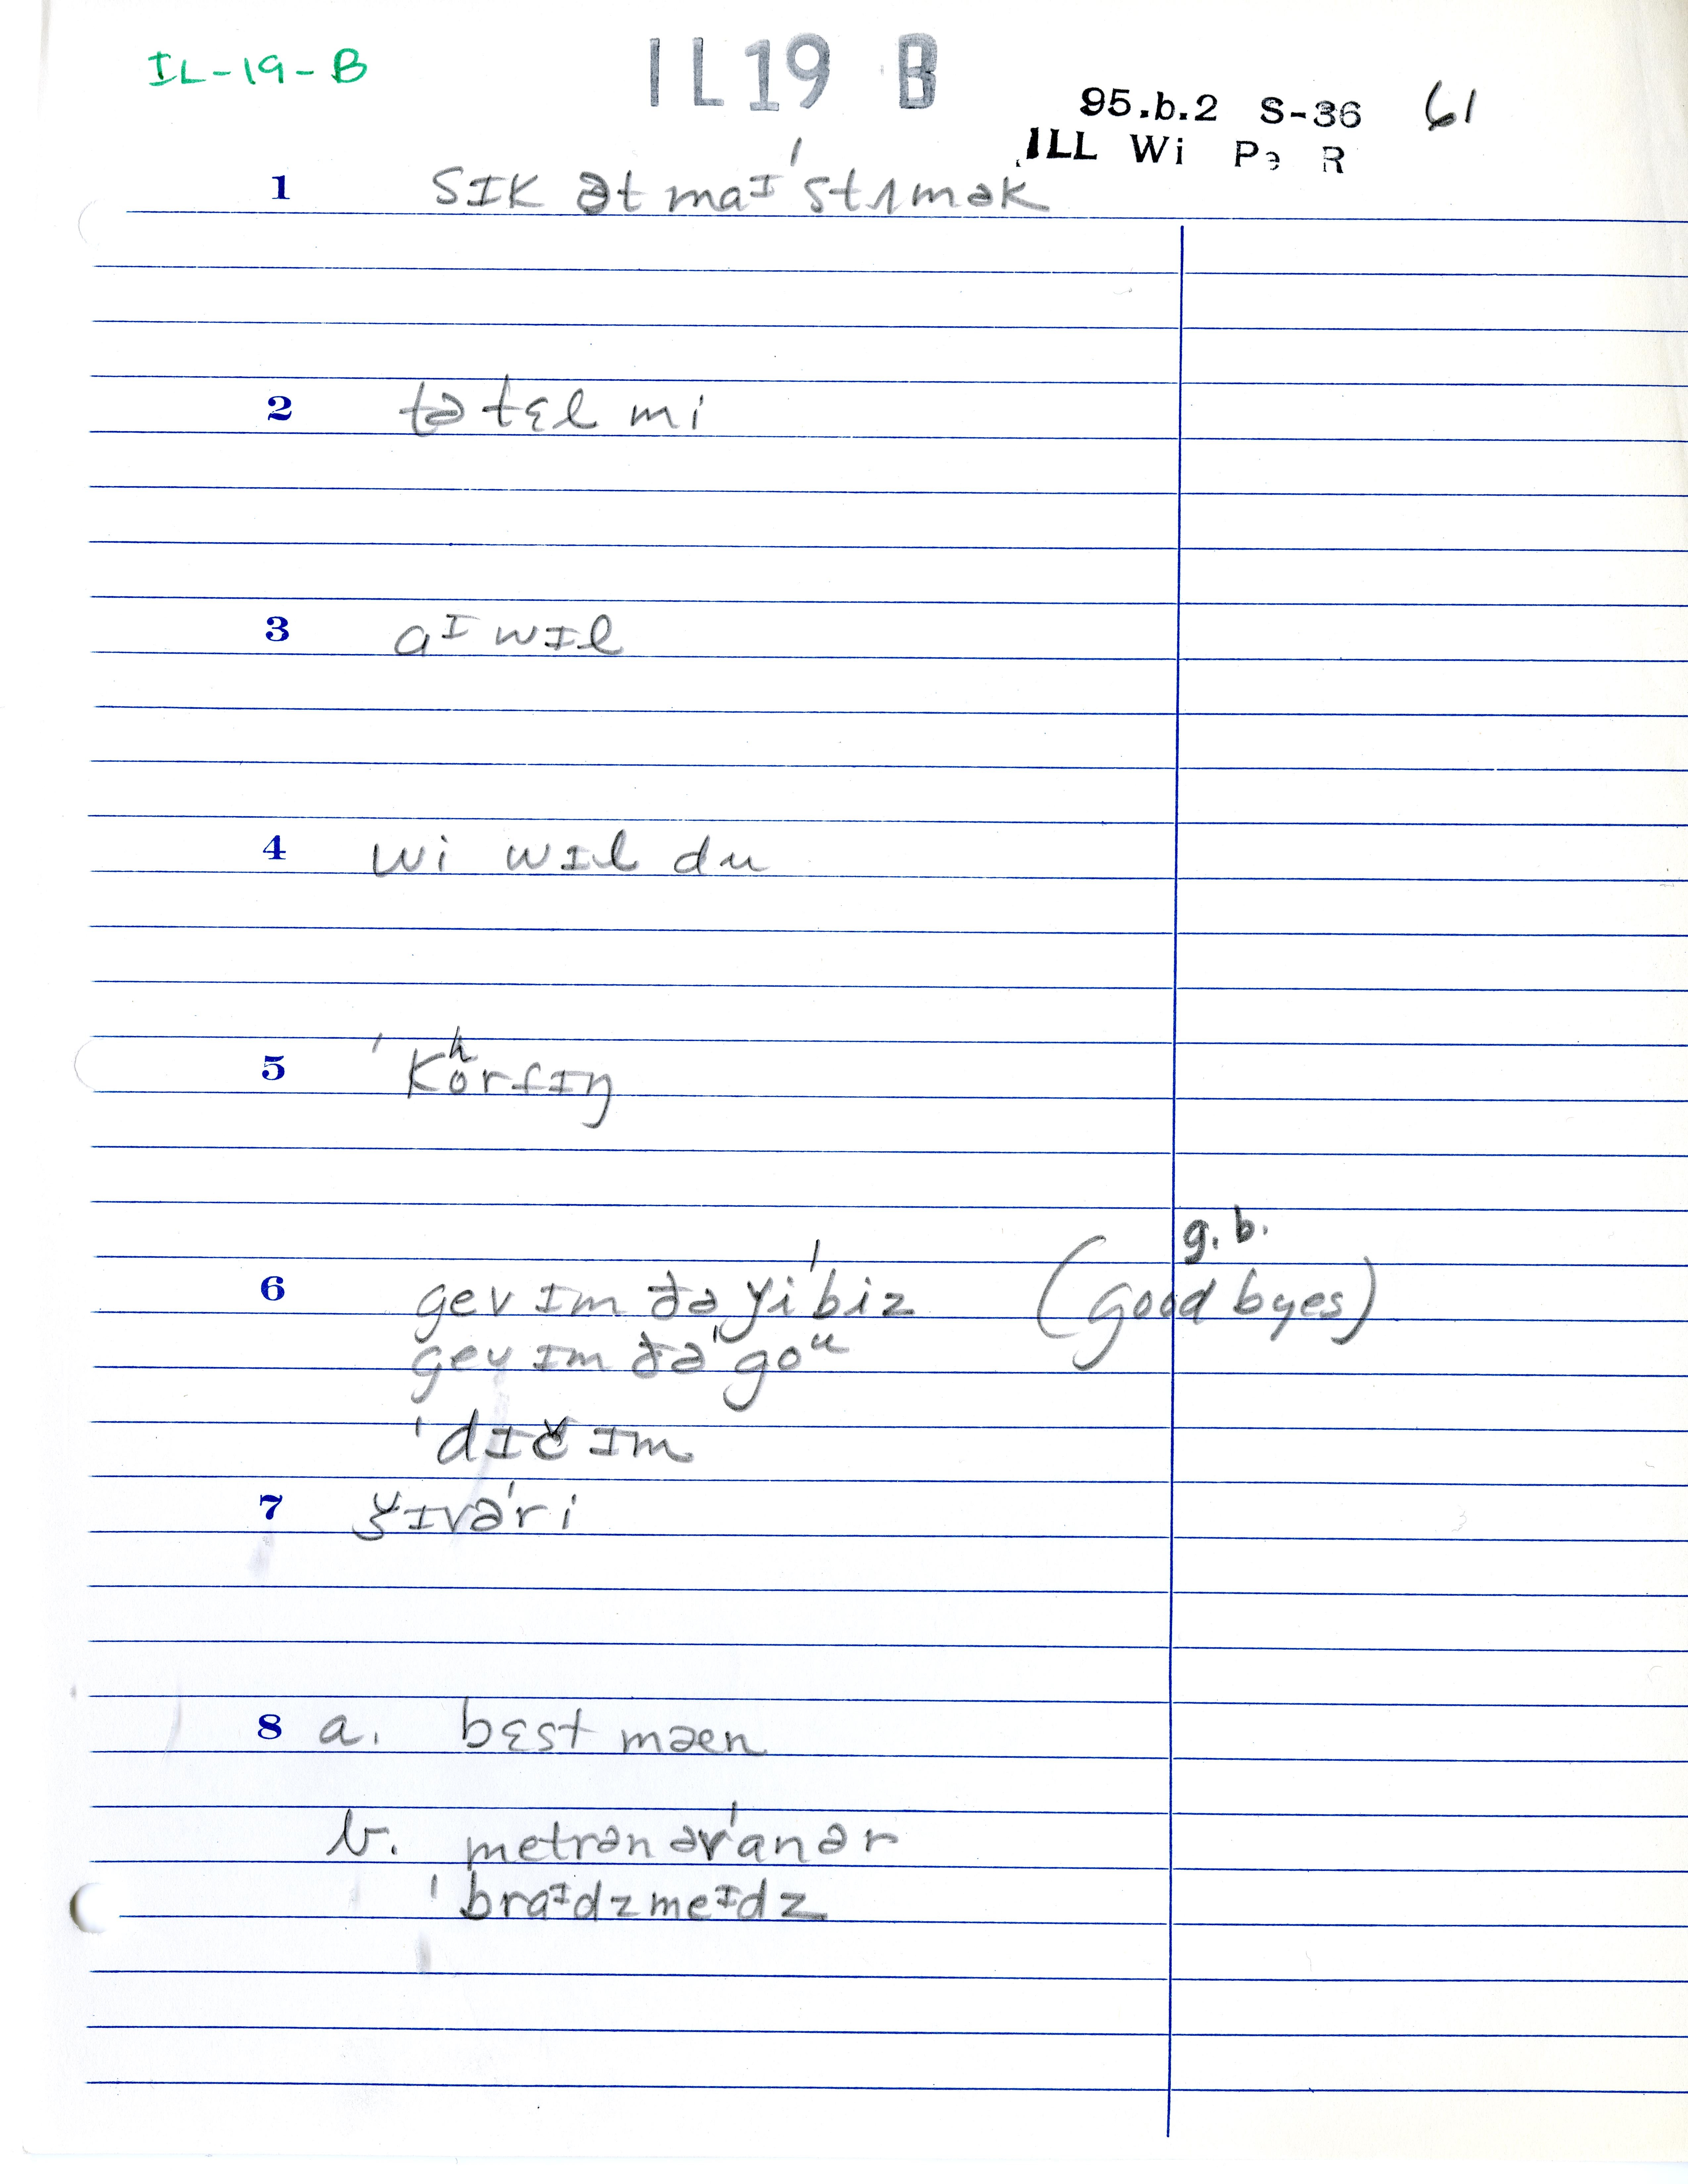 IL-19-B
IL19 B
95.b.2 S-36 61
ILL Wi Pə R
1 sɪk ət maᴵ ˈstʌmək
2 tə tɛl mi
3 aᴵ wɪl
4 wi wɪl du
5 ˈkʰorfɪŋ
6 gev ɪm đə ɣi ˈbiz (good byes) g.b.
gev ɪm đə ˈgoᵘ
ˈdɪč ɪm
7 šɪvəˈri
8 a. bɛst mæn
b. metrən əv ˈanər
ˈbraᴵdzmeᴵdz